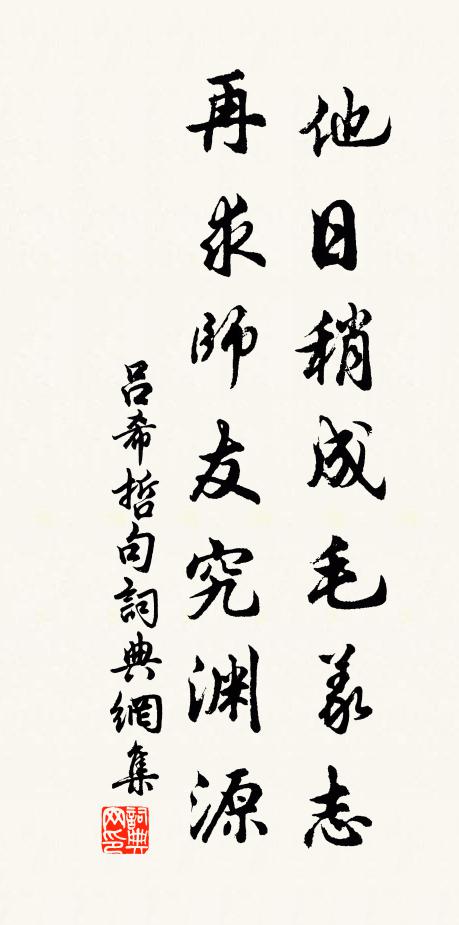 他日稍成毛義志
再求師友究渊源
吕希哲句詞典網集
詞典网印